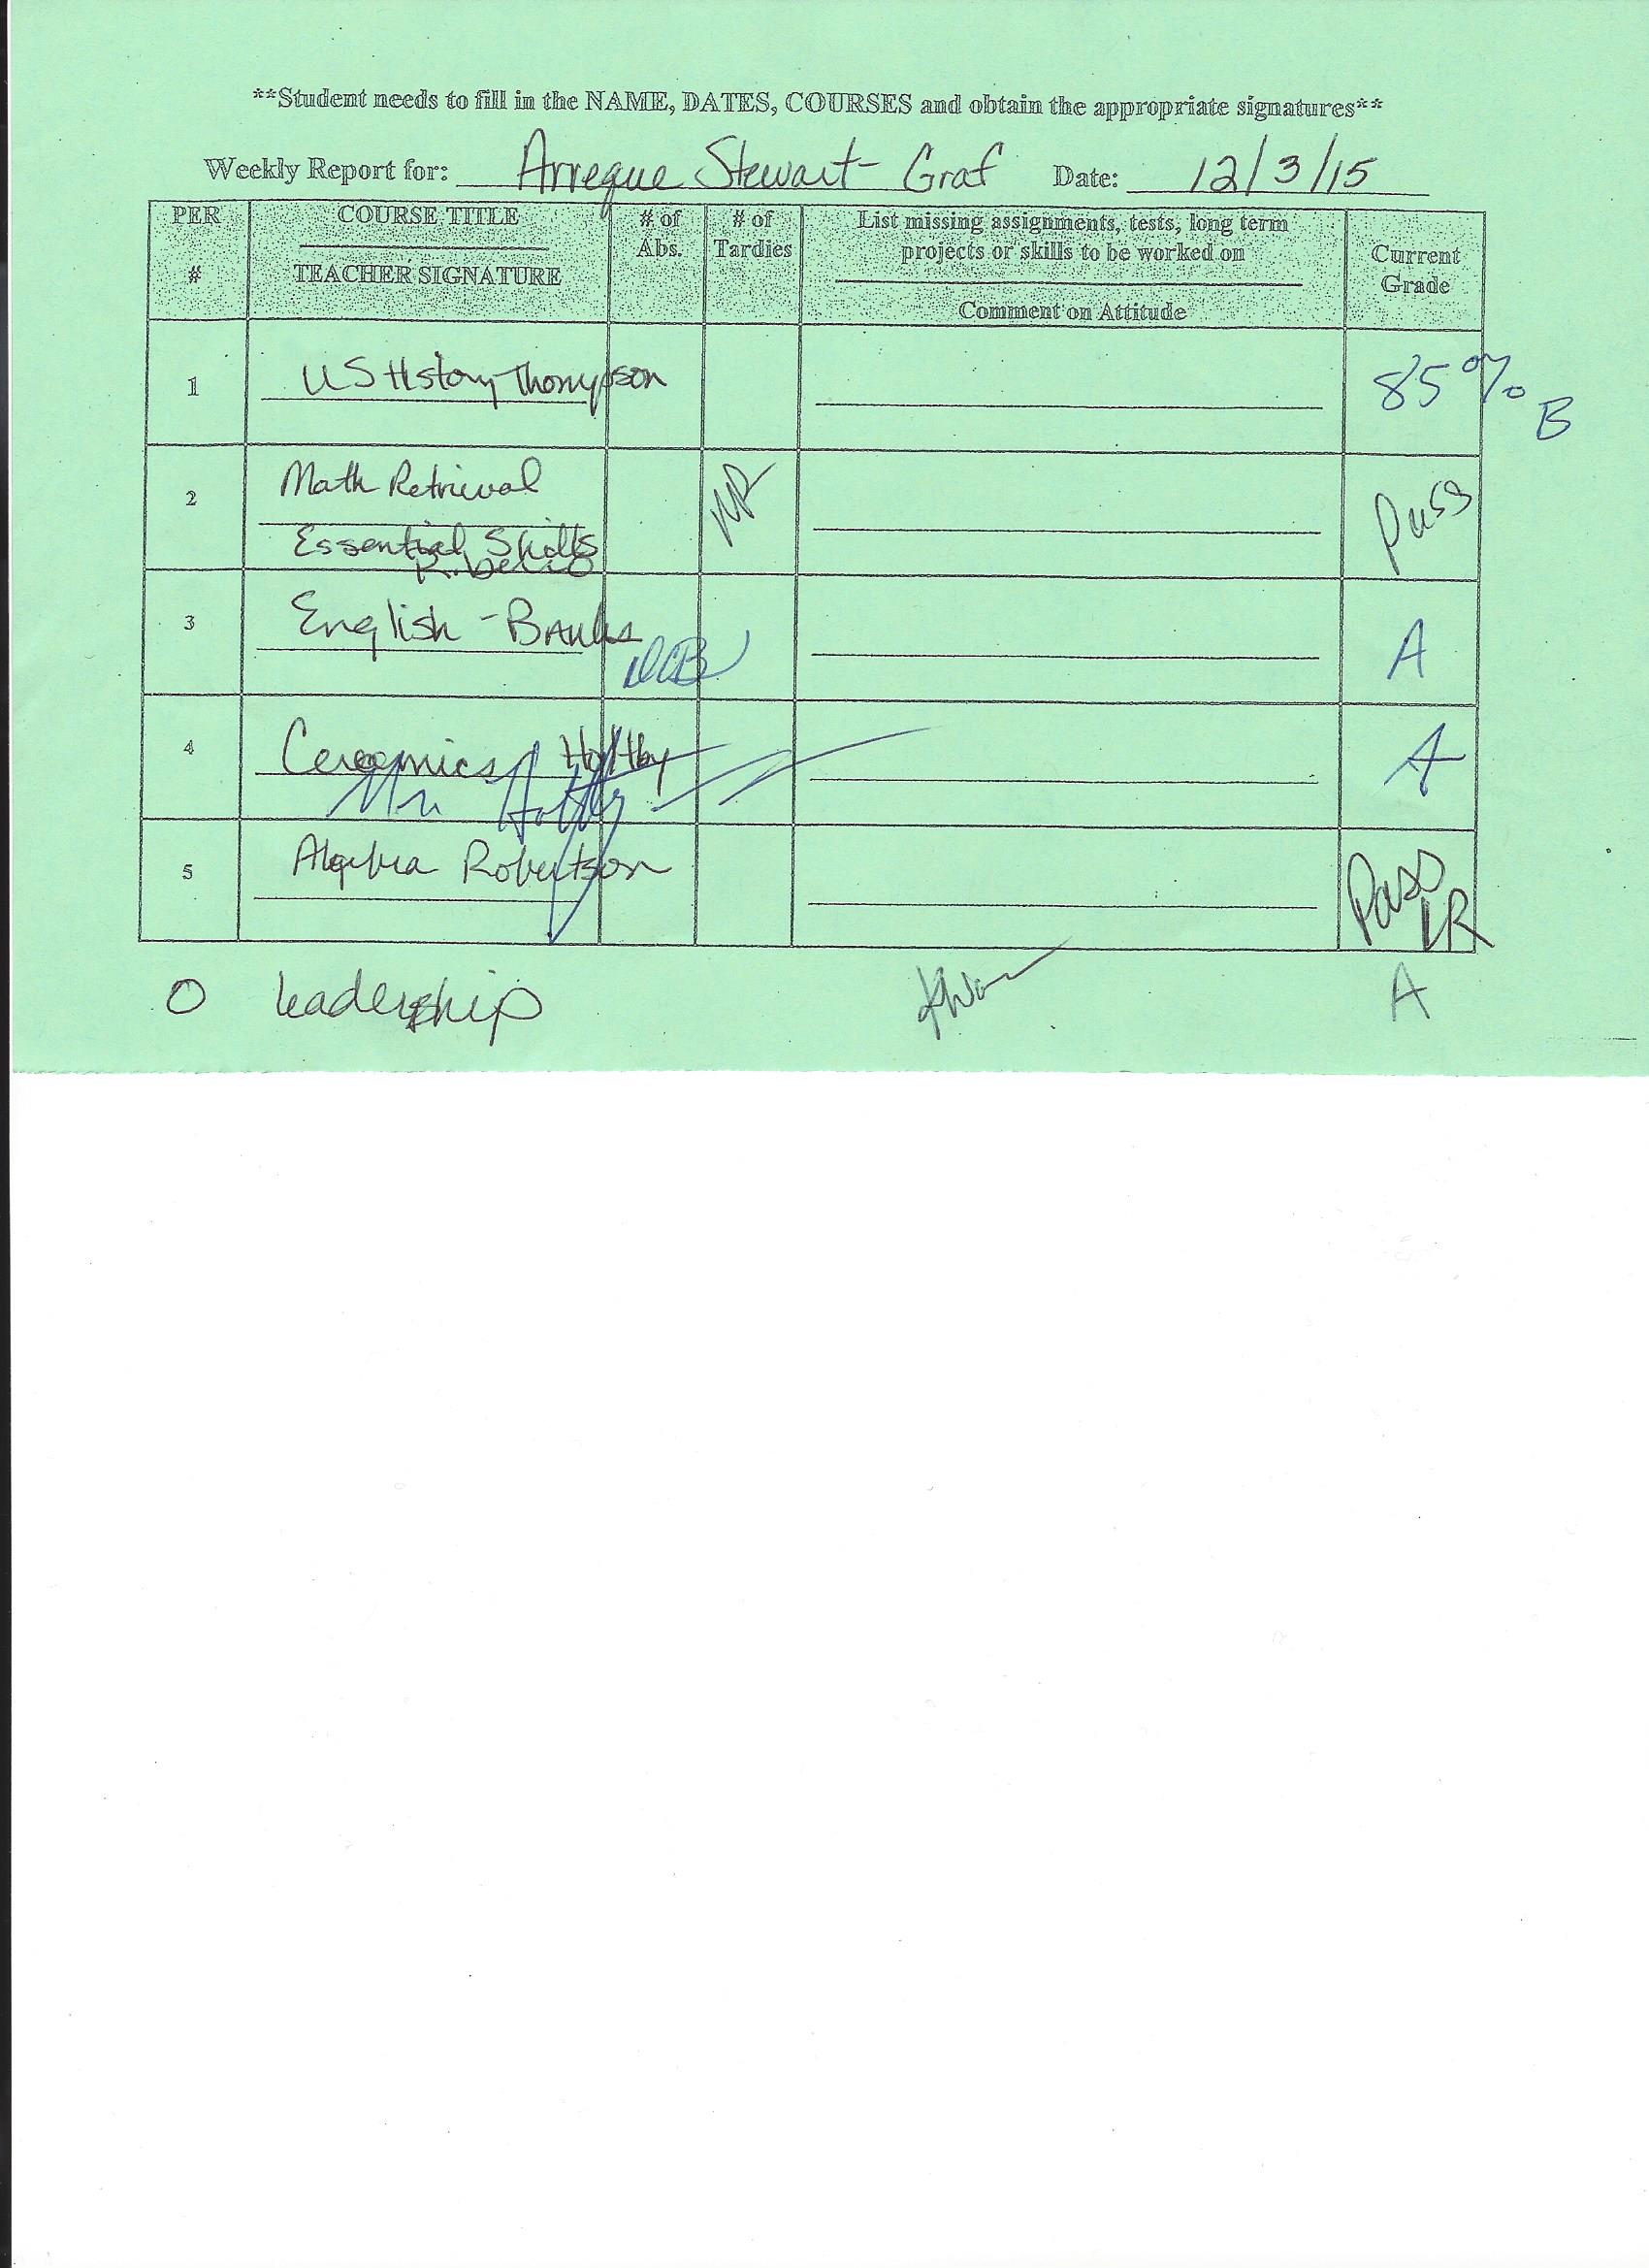 **Student needs to fill in the NAME, DATES, COURSES and obtain the appropriate signatures**
Weekly Report for: Arreque Stewart-Graf Date: 12/3/15
PER # COURSE TITLE TEACHER SIGNATURE # of Abs. # of Tardies List missing assignments, tests, long term projects or skills to be worked on Comment on Attitude Current Grade
1 US History Thompson 85% B
2 Math Retrieval Pass
Essential Skills
3 English - Banks A
DCB
4 Ceramics Holtby A
Mr Holtby
5 Algebra Robertson Pass
LR
0 leadership A